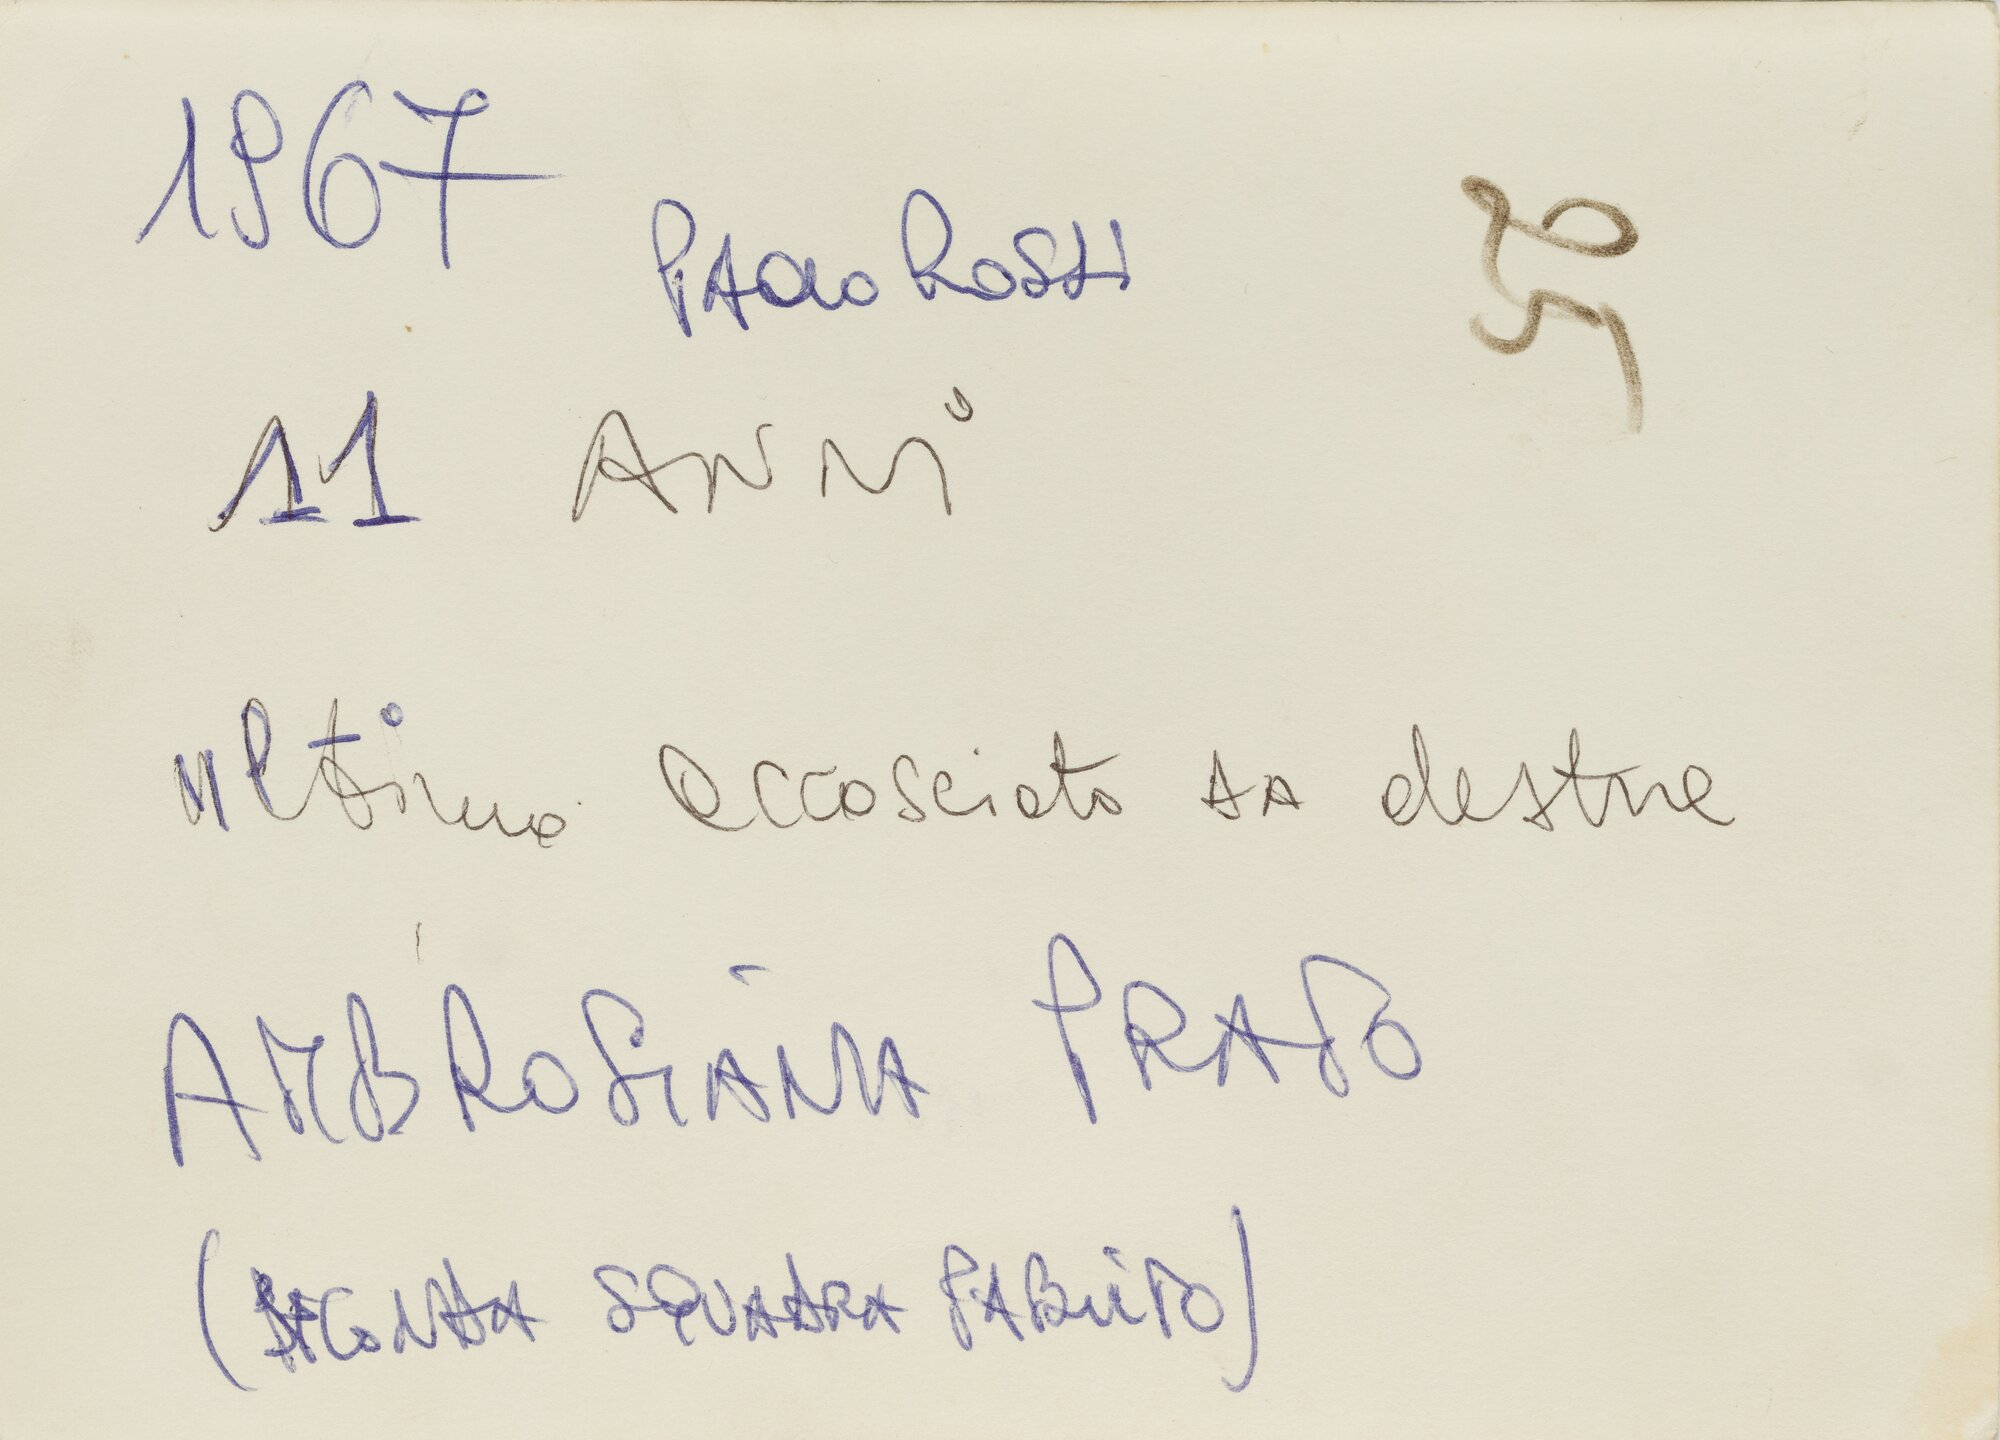 1967
PAOlO ROSSI
11 ANNi
ultimo accosciato DA destra
AMBROSiANA PRATO
(SECONDA SQUADRA